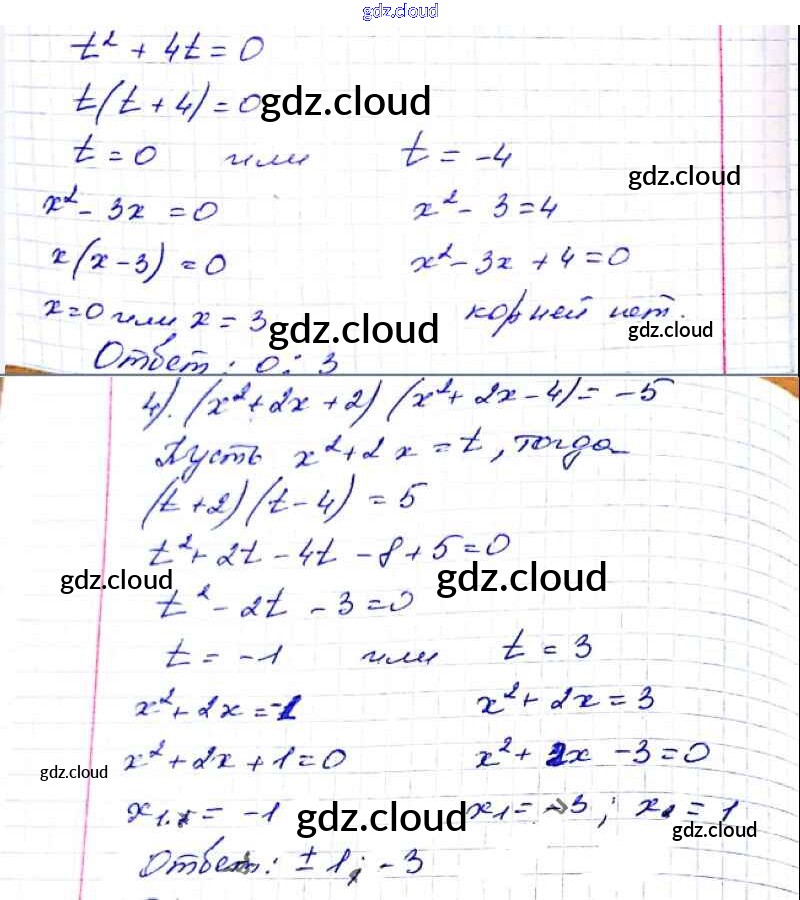 gdz.cloud
t² + 4t = 0
t(t + 4) = 0 gdz.cloud
t = 0 или t = -4
gdz.cloud
x² - 3x = 0 x² - 3 = 4
x(x - 3) = 0 x² - 3x + 4 = 0
x = 0 или x = 3 gdz.cloud корней нет. gdz.cloud
Ответ: 0; 3
4). (x² + 2x + 2) (x² + 2x - 4) = -5
Пусть x² + 2x = t, тогда
(t + 2) (t - 4) = 5
t² + 2t - 4t - 8 + 5 = 0
gdz.cloud gdz.cloud
t² - 2t - 3 = 0
t = -1 или t = 3
x² + 2x = -1 x² + 2x = 3
x² + 2x + 1 = 0 x² + 2x - 3 = 0
gdz.cloud
x₁.₂ = -1 gdz.cloud x₁ = -3; x₂ = 1
gdz.cloud
Ответ: ± 1; -3